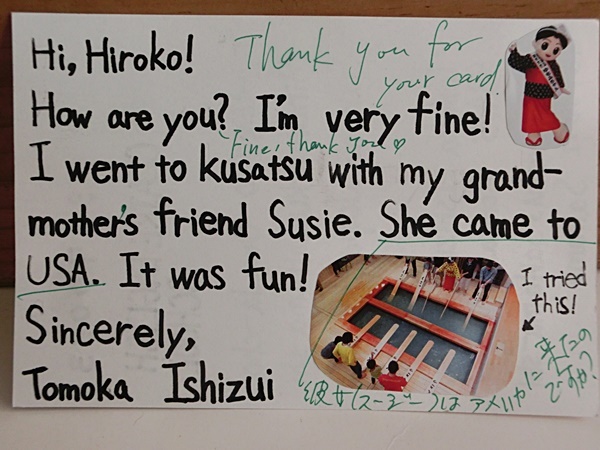 Hi, Hiroko!
Thank you for
your card.
How are you? I'm very fine!
Fine, thank you ♡
I went to kusatsu with my grand-
mother's friend Susie. She came to
USA. It was fun!
I tried
this!
Sincerely,
Tomoka Ishizui
彼女(スージー)は アメリカに来たの
ですか?